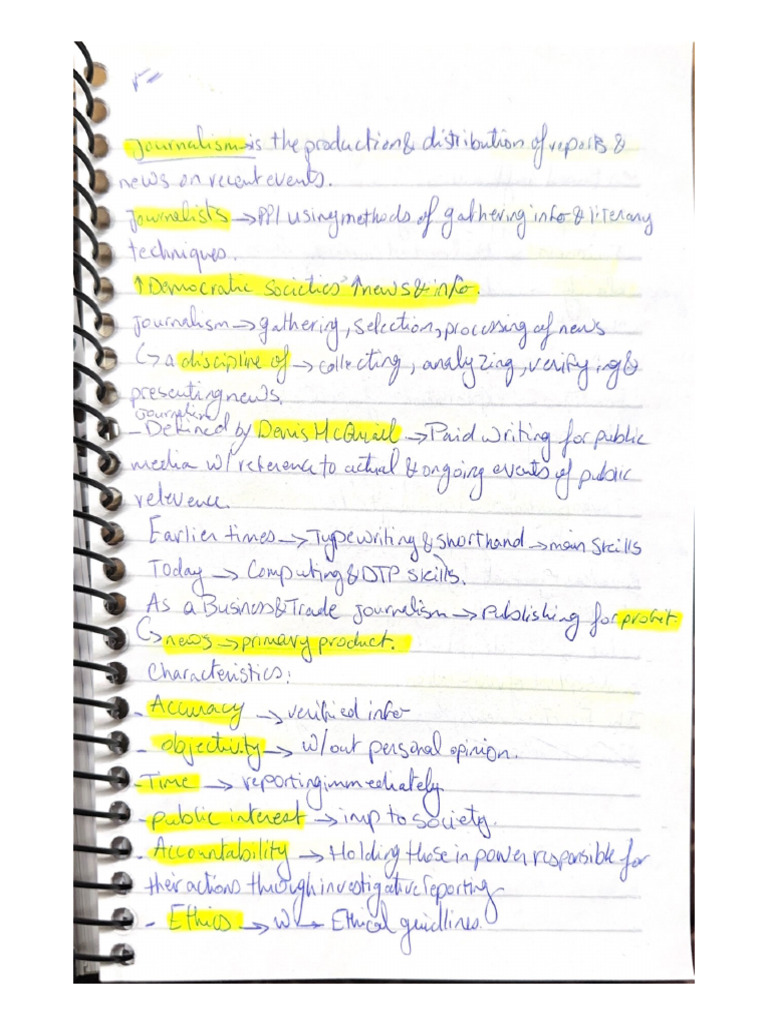 Journalism → is the production & distribution of reports &
news on recent events.
Journalists → PPl using methods of gathering info & literary
techniques.
↑ Democratic Societies ↑ news & info.
Journalism → gathering, selection, processing of news
↳ a discipline of → collecting, analyzing, verifying &
presenting news.
Journalism
- Defined by Denis McQuail → Paid writing for public
media w/ reference to actual & ongoing events of public
relevence.
Earlier times → Typewriting & shorthand → main skills
Today → Computing & DTP skills.
As a Business & Trade journalism → Publishing for profit.
↳ news → primary product.
Characteristics:
- Accuracy → verified info
- objectivity → w/out personal opinion.
- Time → reporting immediately
- public interest → imp to society.
- Accountability → Holding those in power responsible for
their actions through investigative reporting
- Ethics → w → Ethical guidlines.